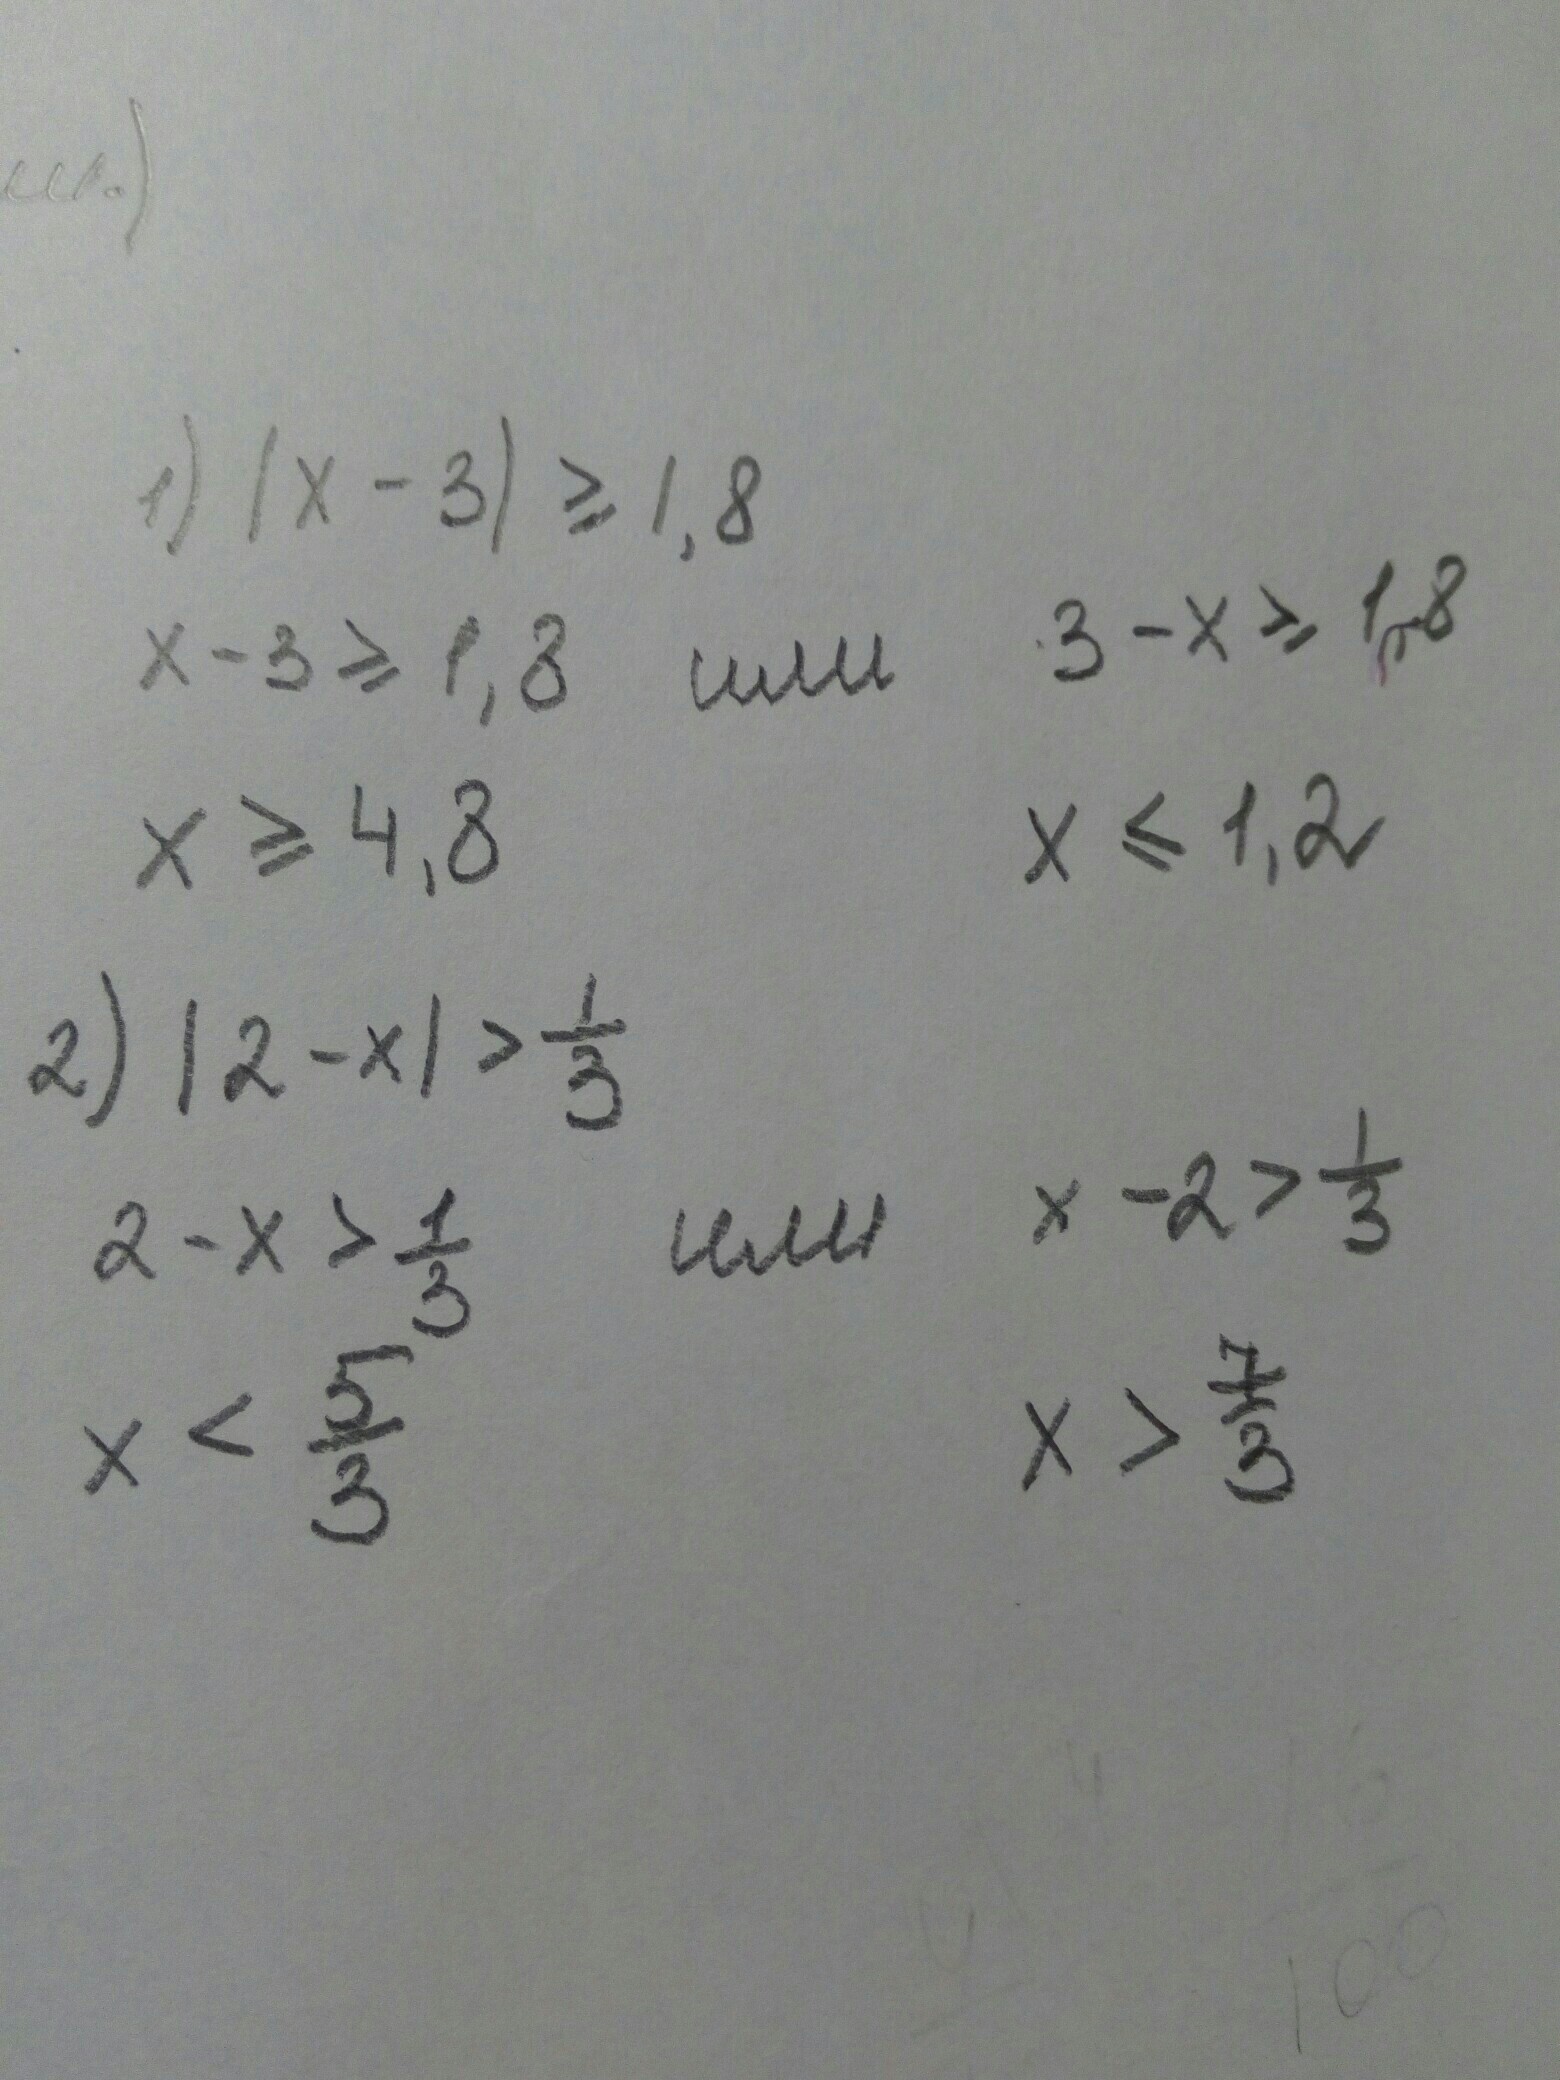 1) |x - 3| ⩾ 1,8
x - 3 ⩾ 1,8 или 3 - x ⩾ 1,8
x ⩾ 4,8 x ⩽ 1,2
2) |2 - x| > 1/3
2 - x > 1/3 или x - 2 > 1/3
x < 5/3 x > 7/3